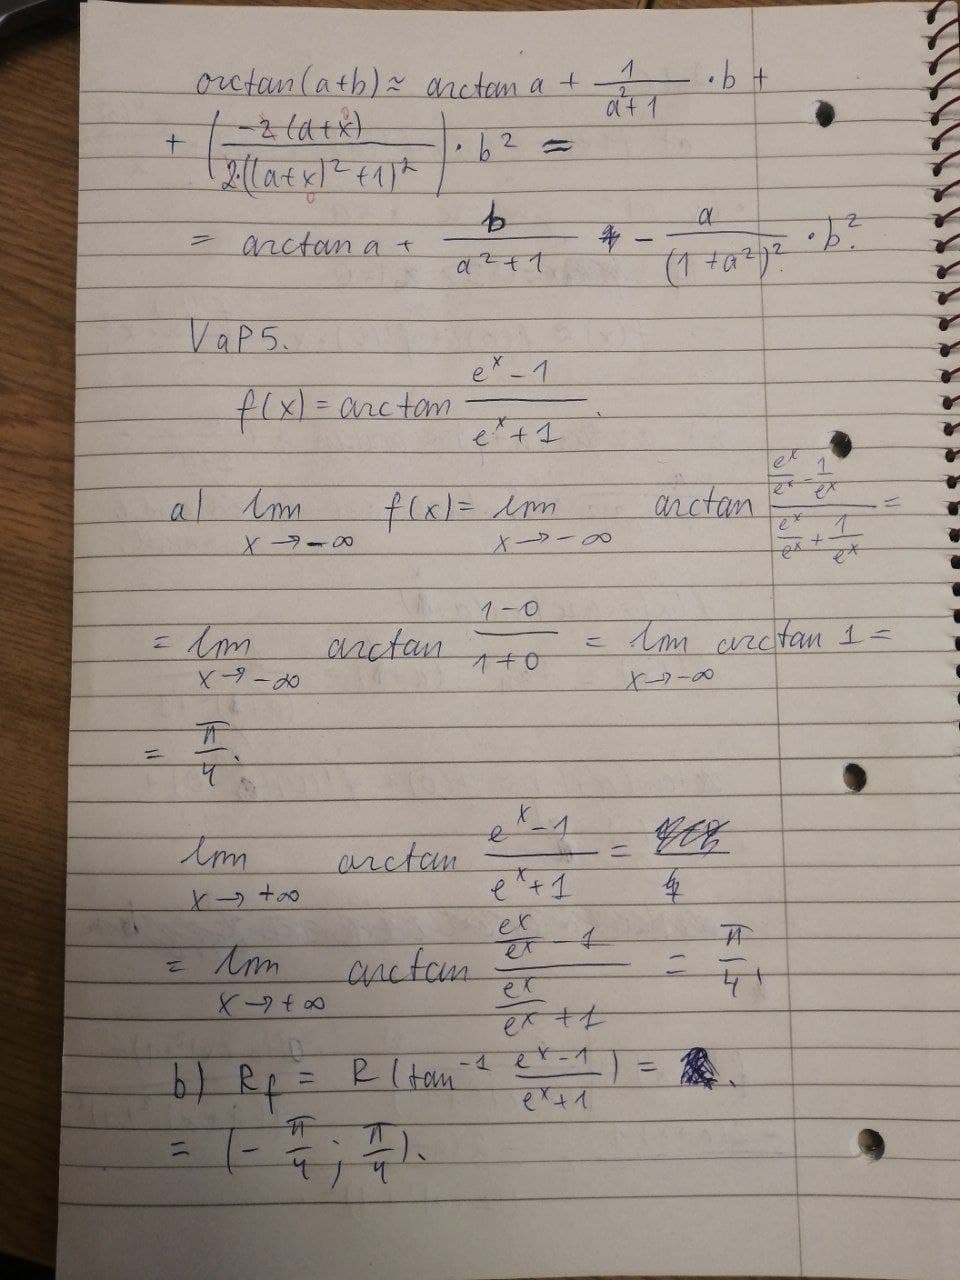 arctan(a+b) ≈ arctan a + 1/(a²+1) · b +
+ (-2(a+x)/(2·((a+x)²+1)²)) · b² =
= arctan a + b/(a²+1) - a/(1+a²)² · b².
VaP5.
f(x) = arctan (e^x - 1)/(e^x + 1).
a) lim x→-∞ f(x) = lim x→-∞ arctan (e^x/e^x - 1/e^x)/(e^x/e^x + 1/e^x) =
= lim x→-∞ arctan (1-0)/(1+0) = lim x→-∞ arctan 1 =
= π/4.
lim x→+∞ arctan (e^x - 1)/(e^x + 1) =
= lim x→+∞ arctan (e^x/e^x - 1)/(e^x/e^x + 1) = π/4.
b) R_f = R(tan⁻¹ (e^x - 1)/(e^x + 1)) =
= (-π/4; π/4).